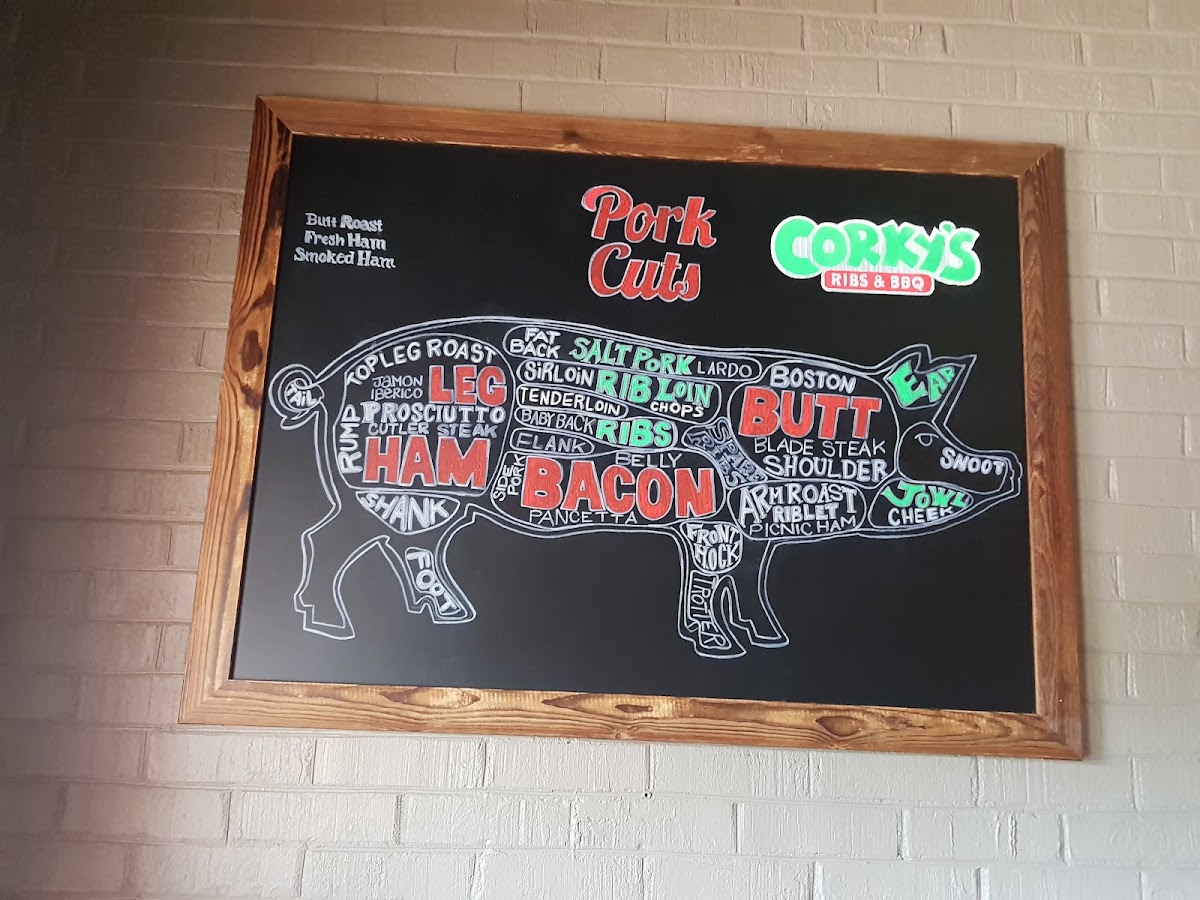 Butt Roast
Fresh Ham
Smoked Ham
Pork
Cuts
CORKY'S
RIBS & BBQ
TAIL
RUMP
TOP LEG ROAST
JAMON
IBERICO
LEG
PROSCIUTTO
CUTLER STEAK
HAM
SHANK
FOOT
FAT
BACK
SALT PORK
LARDO
SIRLOIN
RIB LOIN
CHOPS
TENDERLOIN
BABY BACK
RIBS
FLANK
SIDE
PORK
BELLY
BACON
PANCETTA
SPARE
RIBS
BOSTON
BUTT
BLADE STEAK
SHOULDER
ARM ROAST
RIBLET
PICNIC HAM
FRONT
HOCK
TROTTER
EAR
SNOOT
JOWL
CHEEK